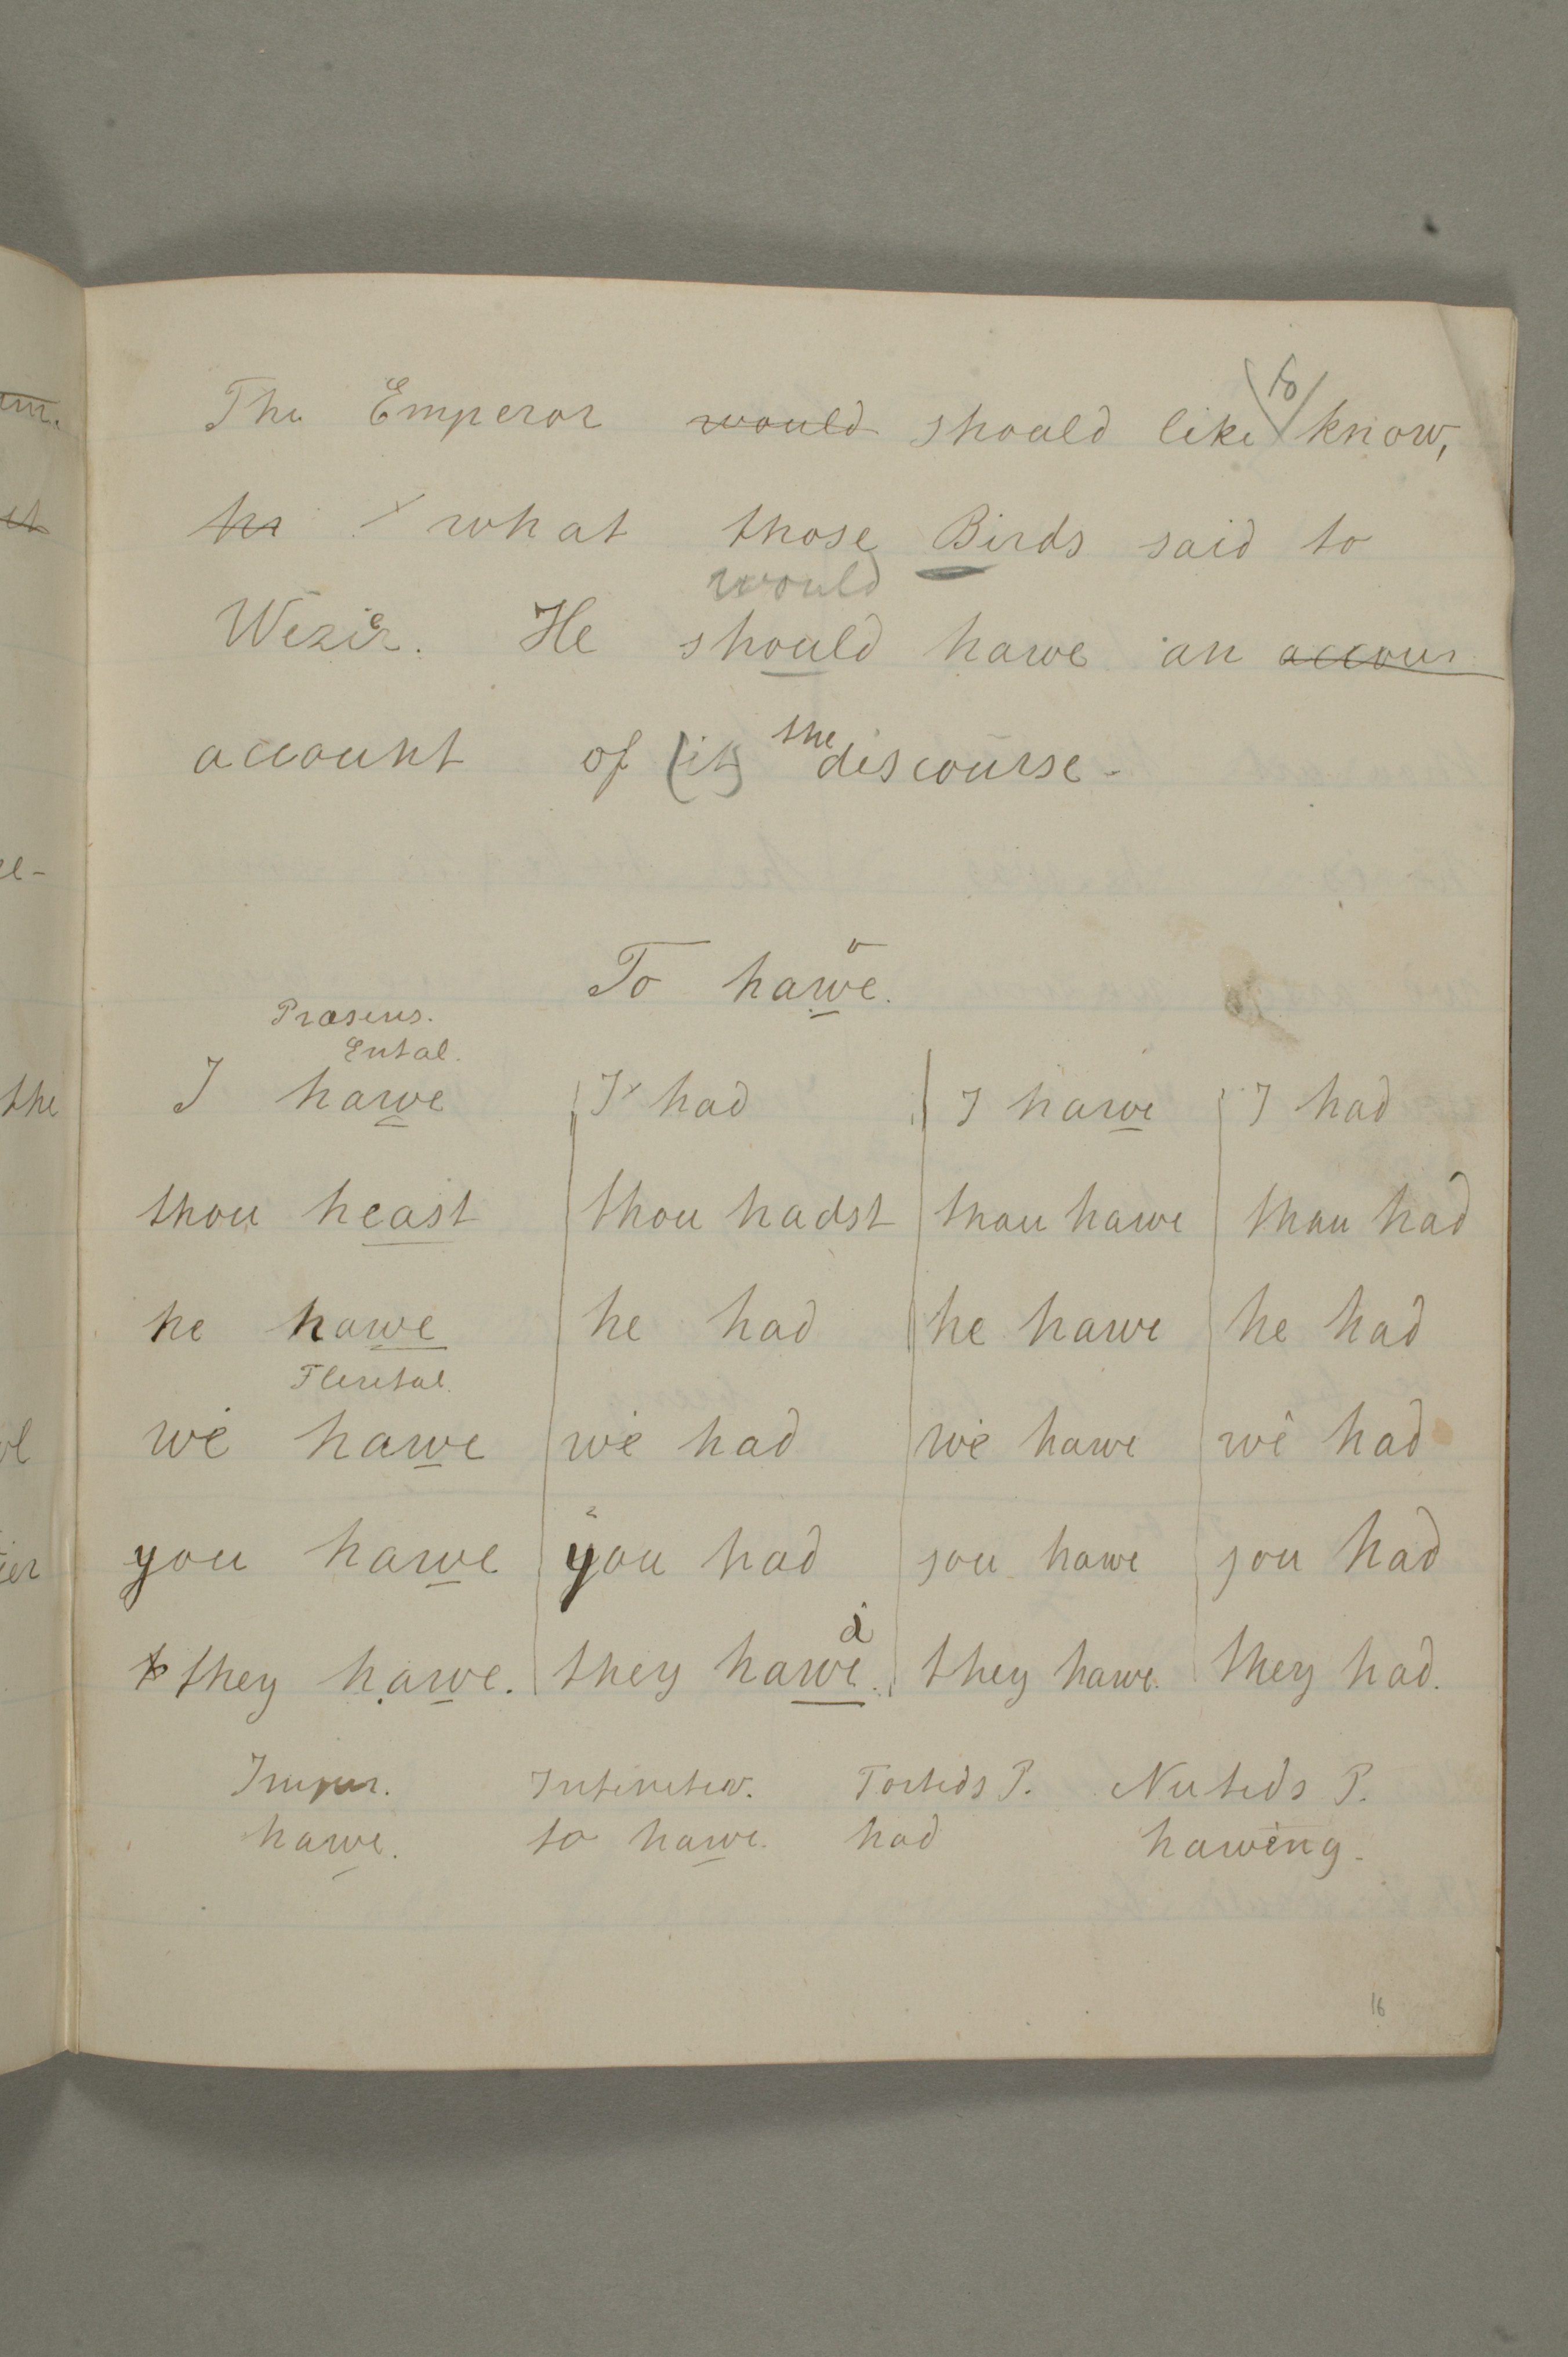 The Emperor would should like to know,
hr what those Birds said to
would
Wezier. He should hawe an accoun
account of (it) the discourse.
To hawe.
Præsens.
Ental.
I hawe I had I hawe I had
thou heast thou hadst thou hawe thou had
he hawe he had he hawe he had
Flertal.
we hawe we had we hawe we had
you hawe you had you hawe you had
they hawe. they hawe. they hawe. they had.
Imper. Infinitiv. Fortids P. Nutids P.
hawe. to hawe. had hawing.
16